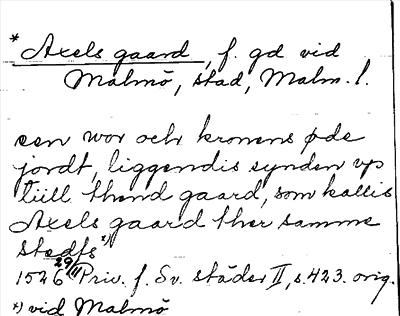 * Axels gaard, f. gd vid
Malmö, stad, Malm. l.
een wor och kronens øde
jordt, liggendis synden vp
tiill thend gaard, som kallis
Axels gaard ther samme
stedfs *)
1526 29/11 Priv. f. Sv. städer II, s. 423. orig.
*) vid Malmö